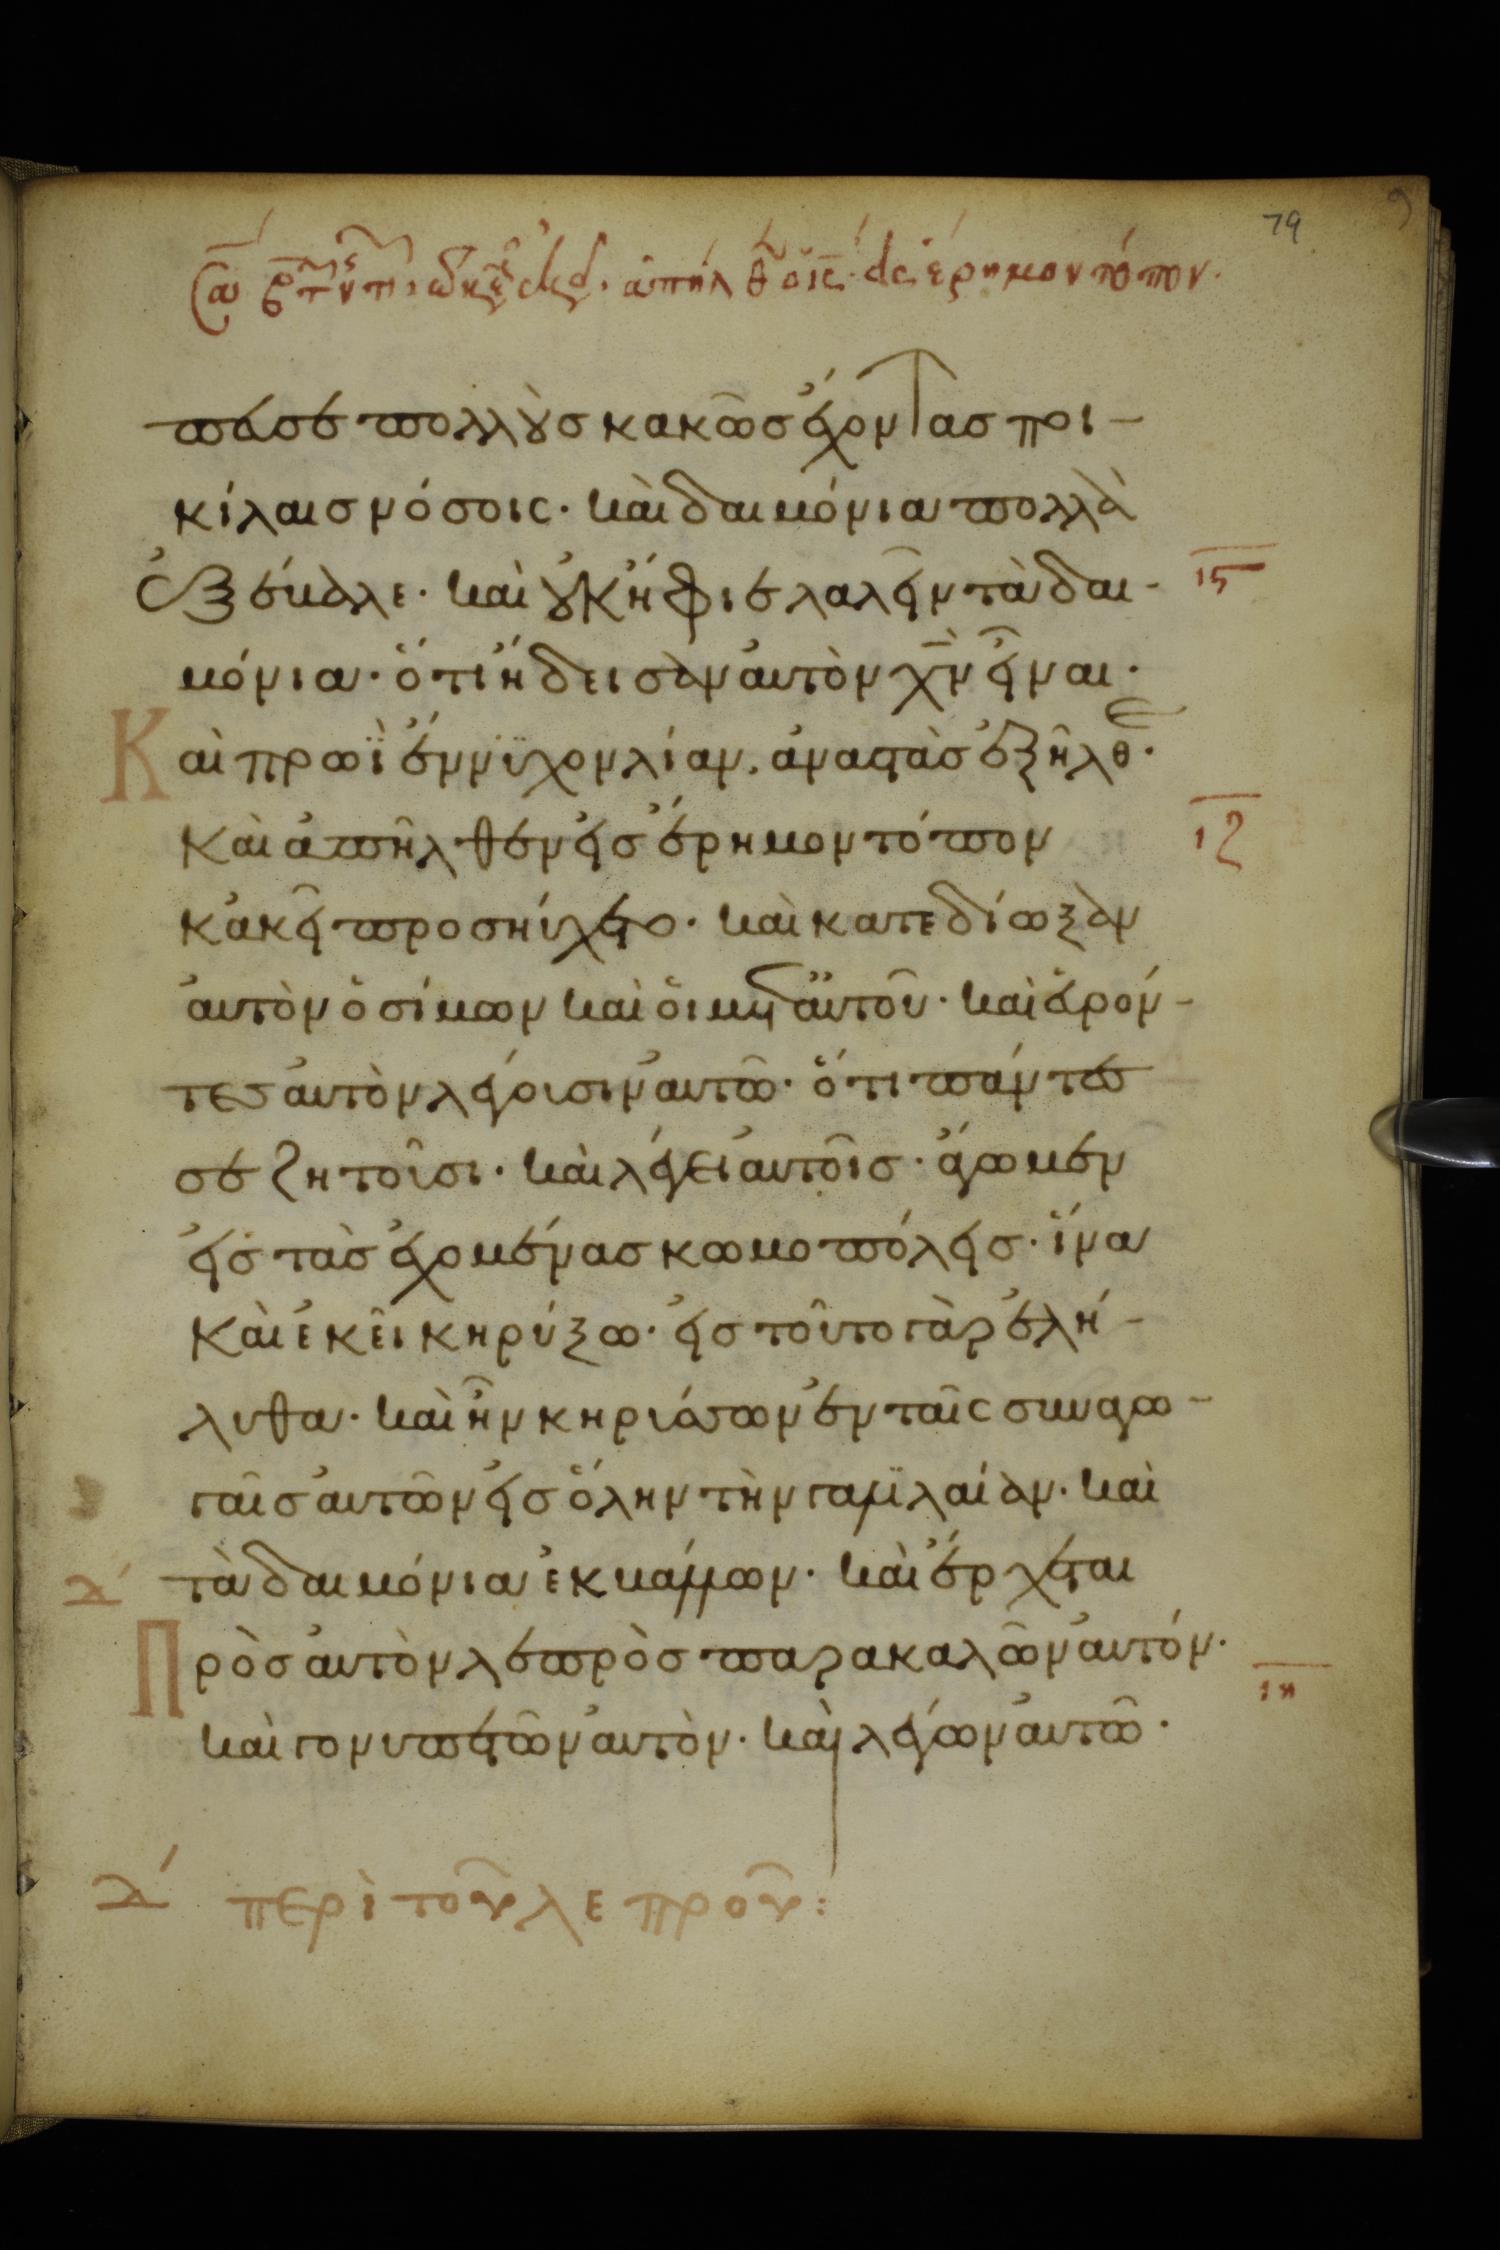 79
ἀπῆλθ ὁ ις εἰς ἔρημον τόπον.
πευσε πολλοὺς κακῶς ἔχοντας ποι-
κίλαις νόσοις· καὶ δαιμόνια πολλὰ
ἐξέβαλε· καὶ οὐκ ἤφιε λαλεῖν τὰ δαι-
ιϛ
μόνια· ὅτι ᾔδεισαν αὐτὸν χν εἶναι·
Καὶ πρωῒ ἔννϋχον λίαν. ἀναστὰς ἐξῆλθε·
Καὶ ἀπῆλθεν εἰς ἔρημον τόπον
ιζ
κἀκεῖ προσηύχετο· καὶ κατεδίωξαν
αὐτὸν ὁ σίμων καὶ οἱ μετ αὐτοῦ· καὶ εὑρόν-
τες αὐτὸν λέγουσιν αὐτῶ· ὅτι πάντες
σε ζητοῦσι· καὶ λέγει αὐτοῖς· ἄγωμεν
εἰς τὰς ἐχομένας κωμοπόλεις· ἵνα
Καὶ ἐκεῖ κηρύξω· εἰς τοῦτο γὰρ ἐλή-
λυθα· καὶ ἦν κηρύσσων ἐν ταῖς συναγω-
γαῖς αὐτῶν εἰς ὅλην τὴν γαλϊλαίαν· καὶ
δ´
τὰ δαιμόνια ἐκβάλλων· καὶ ἔρχεται
Πρὸς αὐτὸν λεπρὸς παρακαλῶν αὐτόν·
ιη
καὶ γονυπετῶν αὐτὸν· καὶ λέγων αὐτῶ·
δ´ περὶ τοῦ λεπροῦ: